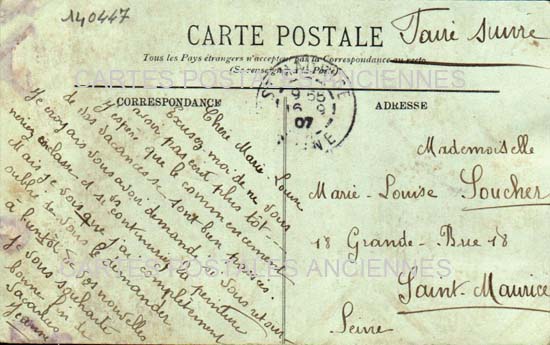 140447
CARTE POSTALE
Faire suivre
Tous les Pays étrangers n'acceptent pas la Correspondance au recto
(Se renseigner à la Poste)
CARTES POSTALES ANCIENNES
CORRESPONDANCE
ADRESSE
Chère Marie Louise
Excusez moi de ne vous
avoir pas écrit plus tôt
J'espère que le commencement
de vos vacances se sont bien passées.
Je croyais vous avoir demandé si vous retour
neriez en classe et si vous continueriez la peinture
Mais je vois que j'ai complètement
oublié de vous le demander
à bientôt de vos nouvelles
Je vous souhaite
bonne fin de
vacances
Jeanne
9 55
6 9
07
Mademoiselle
Marie-Louise Loucher
18 Grande-Rue 18
Saint Maurice
Seine
CARTES POSTALES ANCIENNES